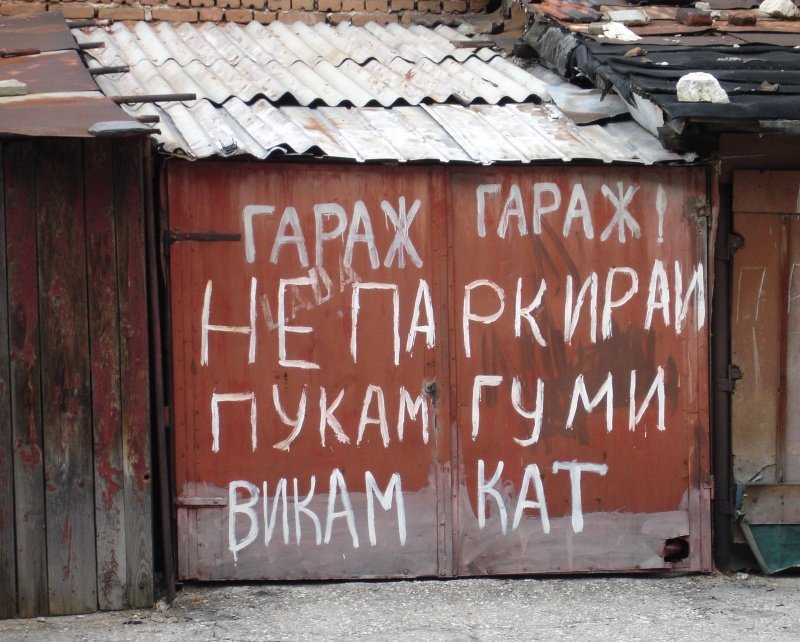 ГАРАЖ ГАРАЖ!
НЕ ПАРКИРАИ
ПУКАМ ГУМИ
ВИКАМ КАТ
LADA